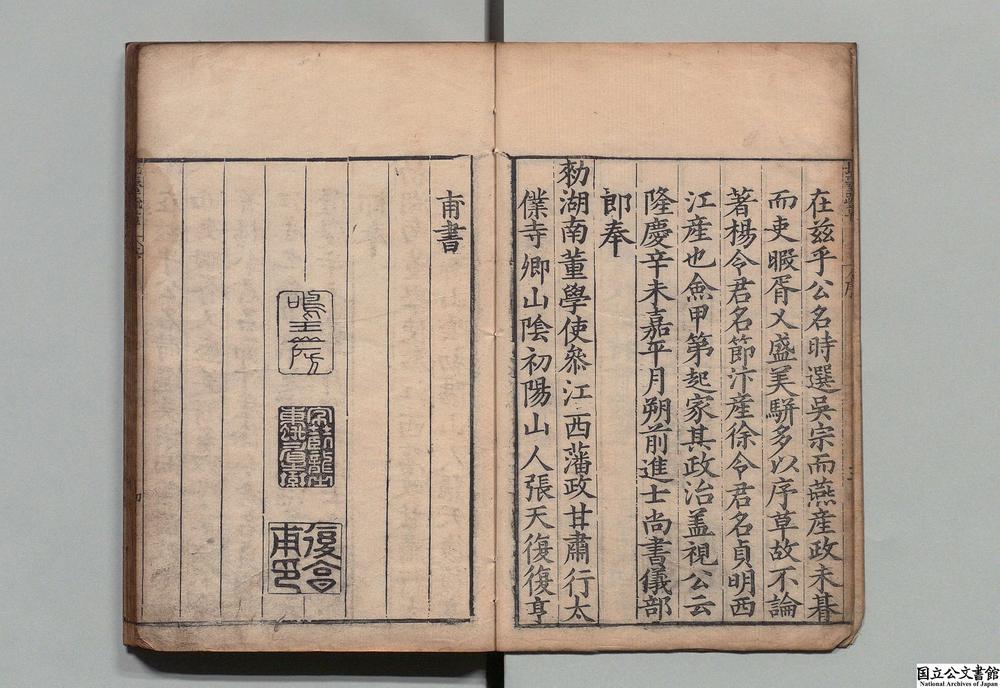 在兹乎公名時選吳宗而燕産政未朞
而吏暇胥乂盛美駢多以序草故不論
著楊令君名節汴産徐令君名貞明西
江産也僉甲第起家其政治盖視公云
隆慶辛未嘉平月朔前進士尚書儀部
郎奉
勑湖南董學使叅江西藩政甘肅行太
僕寺卿山陰初陽山人張天復復亨
甫書
鳴玉房
復亨甫印
国立公文書館
National Archives of Japan